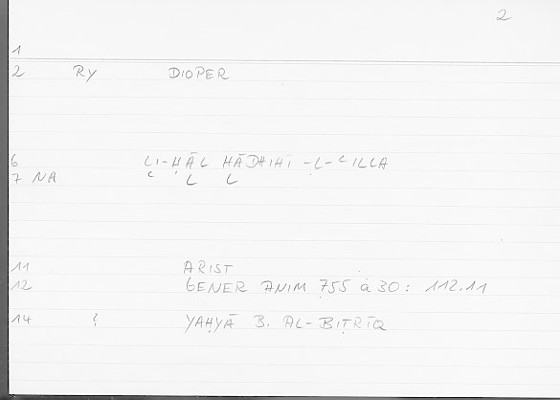 2
1
2 RY DIOPER
6 LI-ḤĀL HĀDHIHI -L-ʿILLA
7 NA
11 ARIST
12 GENER ANIM 755 a 30: 112.11
14 ? YAḤYĀ B. AL-BIṬRĪQ